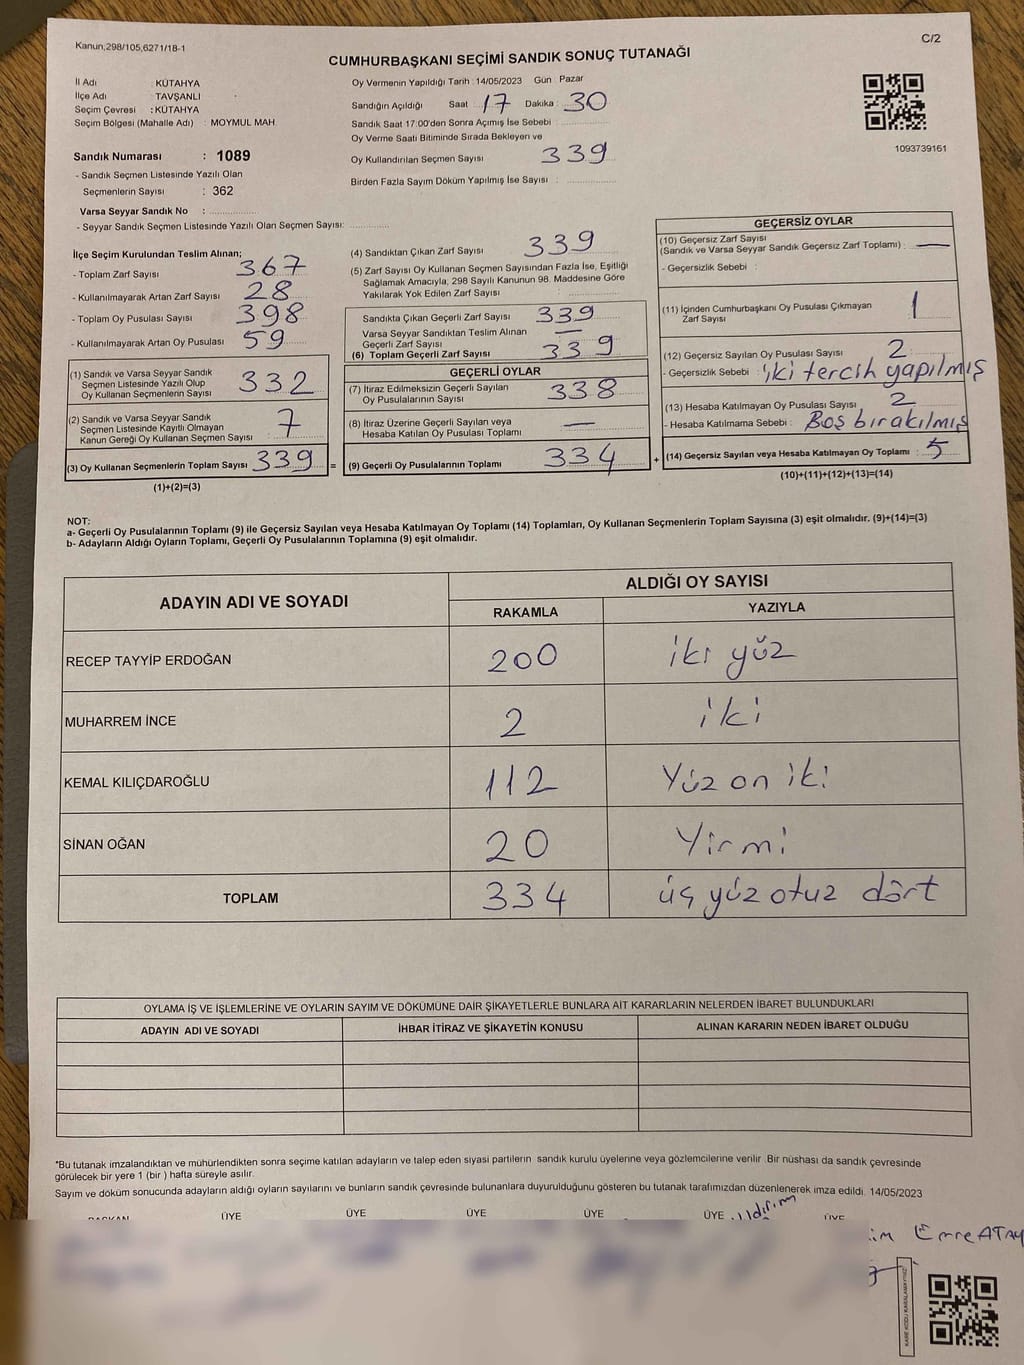 Kanun;298/105,6271/18-1
C/2
CUMHURBAŞKANI SEÇİMİ SANDIK SONUÇ TUTANAĞI
İl Adı : KÜTAHYA
İlçe Adı : TAVŞANLI
Seçim Çevresi : KÜTAHYA
Seçim Bölgesi (Mahalle Adı) : MOYMUL MAH.
Sandık Numarası : 1089
- Sandık Seçmen Listesinde Yazılı Olan
Seçmenlerin Sayısı : 362
Varsa Seyyar Sandık No :
- Seyyar Sandık Seçmen Listesinde Yazılı Olan Seçmen Sayısı:
Oy Vermenin Yapıldığı Tarih : 14/05/2023 Gün : Pazar
Sandığın Açıldığı Saat : 17 Dakika : 30
Sandık Saat 17:00'den Sonra Açımış İse Sebebi :
Oy Verme Saati Bitiminde Sırada Bekleyen ve
Oy Kullandırılan Seçmen Sayısı 339
Birden Fazla Sayım Döküm Yapılmış İse Sayısı :
1093739161
İlçe Seçim Kurulundan Teslim Alınan;
- Toplam Zarf Sayısı 367
- Kullanılmayarak Artan Zarf Sayısı 28
- Toplam Oy Pusulası Sayısı 398
- Kullanılmayarak Artan Oy Pusulası 59
(1) Sandık ve Varsa Seyyar Sandık
Seçmen Listesinde Yazılı Olup
Oy Kullanan Seçmenlerin Sayısı 332
(2) Sandık ve Varsa Seyyar Sandık
Seçmen Listesinde Kayıtlı Olmayan
Kanun Gereği Oy Kullanan Seçmen Sayısı : 7
(3) Oy Kullanan Seçmenlerin Toplam Sayısı 339 =
(1)+(2)=(3)
(4) Sandıktan Çıkan Zarf Sayısı 339
(5) Zarf Sayısı Oy Kullanan Seçmen Sayısından Fazla İse, Eşitliği
Sağlamak Amacıyla, 298 Sayılı Kanunun 98. Maddesine Göre
Yakılarak Yok Edilen Zarf Sayısı :
Sandıkta Çıkan Geçerli Zarf Sayısı 339
Varsa Seyyar Sandıktan Teslim Alınan
Geçerli Zarf Sayısı —
(6) Toplam Geçerli Zarf Sayısı 339
GEÇERLİ OYLAR
(7) İtiraz Edilmeksizin Geçerli Sayılan
Oy Pusulalarının Sayısı 338
(8) İtiraz Üzerine Geçerli Sayılan veya
Hesaba Katılan Oy Pusulası Toplamı —
(9) Geçerli Oy Pusulalarının Toplamı 334 +
GEÇERSİZ OYLAR
(10) Geçersiz Zarf Sayısı
(Sandık ve Varsa Seyyar Sandık Geçersiz Zarf Toplamı) : —
- Geçersizlik Sebebi :
(11) İçinden Cumhurbaşkanı Oy Pusulası Çıkmayan
Zarf Sayısı 1
(12) Geçersiz Sayılan Oy Pusulası Sayısı 2
- Geçersizlik Sebebi : iki tercih yapılmış
(13) Hesaba Katılmayan Oy Pusulası Sayısı 2
- Hesaba Katılmama Sebebi : Boş bırakılmış
(14) Geçersiz Sayılan veya Hesaba Katılmayan Oy Toplamı : 5
(10)+(11)+(12)+(13)=(14)
NOT:
a- Geçerli Oy Pusulalarının Toplamı (9) ile Geçersiz Sayılan veya Hesaba Katılmayan Oy Toplamı (14) Toplamları, Oy Kullanan Seçmenlerin Toplam Sayısına (3) eşit olmalıdır. (9)+(14)=(3)
b- Adayların Aldığı Oyların Toplamı, Geçerli Oy Pusulalarının Toplamına (9) eşit olmalıdır.
ADAYIN ADI VE SOYADI
ALDIĞI OY SAYISI
RAKAMLA YAZIYLA
RECEP TAYYİP ERDOĞAN 200 iki yüz
MUHARREM İNCE 2 iki
KEMAL KILIÇDAROĞLU 112 Yüz on iki
SİNAN OĞAN 20 Yirmi
TOPLAM 334 üç yüz otuz dört
OYLAMA İŞ VE İŞLEMLERİNE VE OYLARIN SAYIM VE DÖKÜMÜNE DAİR ŞİKAYETLERLE BUNLARA AİT KARARLARIN NELERDEN İBARET BULUNDUKLARI
ADAYIN ADI VE SOYADI İHBAR İTİRAZ VE ŞİKAYETİN KONUSU ALINAN KARARIN NEDEN İBARET OLDUĞU
*Bu tutanak imzalandıktan ve mühürlendikten sonra seçime katılan adayların ve talep eden siyasi partilerin sandık kurulu üyelerine veya gözlemcilerine verilir .Bir nüshası da sandık çevresinde
görülecek bir yere 1 (bir ) hafta süreyle asılır.
Sayım ve döküm sonucunda adayların aldığı oyların sayılarını ve bunların sandık çevresinde bulunanlara duyurulduğunu gösteren bu tutanak tarafımızdan düzenlenerek imza edildi. 14/05/2023
BAŞKAN ÜYE ÜYE ÜYE ÜYE ÜYE ÜYE
Emre ATAY